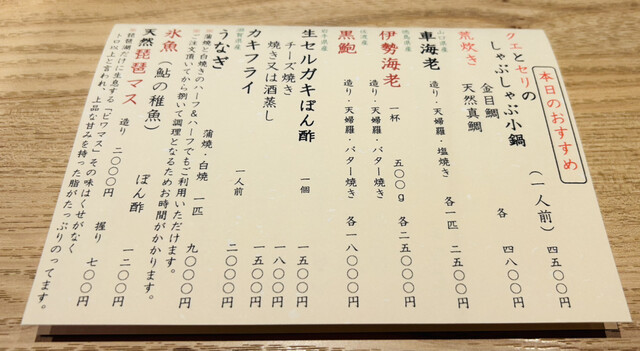 本日のおすすめ
クエとセリの
しゃぶしゃぶ小鍋 (一人前) 四五〇〇円
荒炊き 金目鯛
天然真鯛 各 四八〇〇円
山口県産
車海老 造り・天婦羅・塩焼き 各一匹 二五〇〇円
徳島県産
伊勢海老 一杯 五〇〇g 各二五〇〇円
造り・天婦羅・バター焼き
黒鮑 造り・天婦羅・バター焼き 各一八〇〇〇円
岩手県産
生セルガキぽん酢 一個 一五〇〇円
チーズ焼き 一八〇〇円
焼き又は酒蒸し 一五〇〇円
カキフライ 一人前 二〇〇〇円
うなぎ 蒲焼・白焼 一匹 九〇〇〇円
蒲焼と白焼きのハーフ&ハーフでもご利用いただけます。
ご注文頂いてから捌いて調理となるためお時間がかかります。
氷魚(鮎の稚魚) ぽん酢 一二〇〇円
天然琵琶マス 造り 二〇〇〇円 握り 七〇〇円
琵琶湖だけに生息する「ビワマス」その味はくせがなく
トロ以上と言われ、上品な甘みを持った脂がたっぷりのってます。